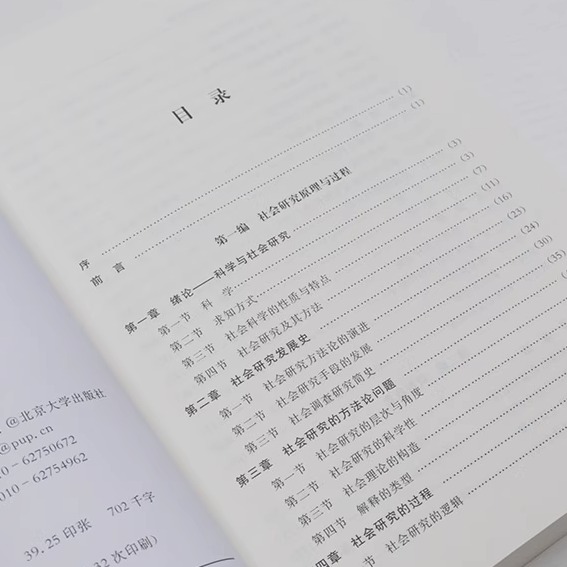 目 录
序 (1)
前 言 (1)
第一编 社会研究原理与过程
第一章 绪论——科学与社会研究 (3)
第一节 科 学 (3)
第二节 求知方式 (7)
第三节 社会科学的性质与特点 (11)
第四节 社会研究及其方法 (16)
第二章 社会研究发展史 (23)
第一节 社会研究方法论的演进 (24)
第二节 社会研究手段的发展 (30)
第三节 社会调查研究简史 (35)
第三章 社会研究的方法论问题
第一节 社会研究的层次与角度
第二节 社会研究的科学性
第三节 社会理论的构造
第四节 解释的类型
四章 社会研究的过程
节 社会研究的逻辑
@北京大学出版社
@pup.cn
10 - 62750672
010 - 62754962
39.25 印张 702 千字
次(印刷)